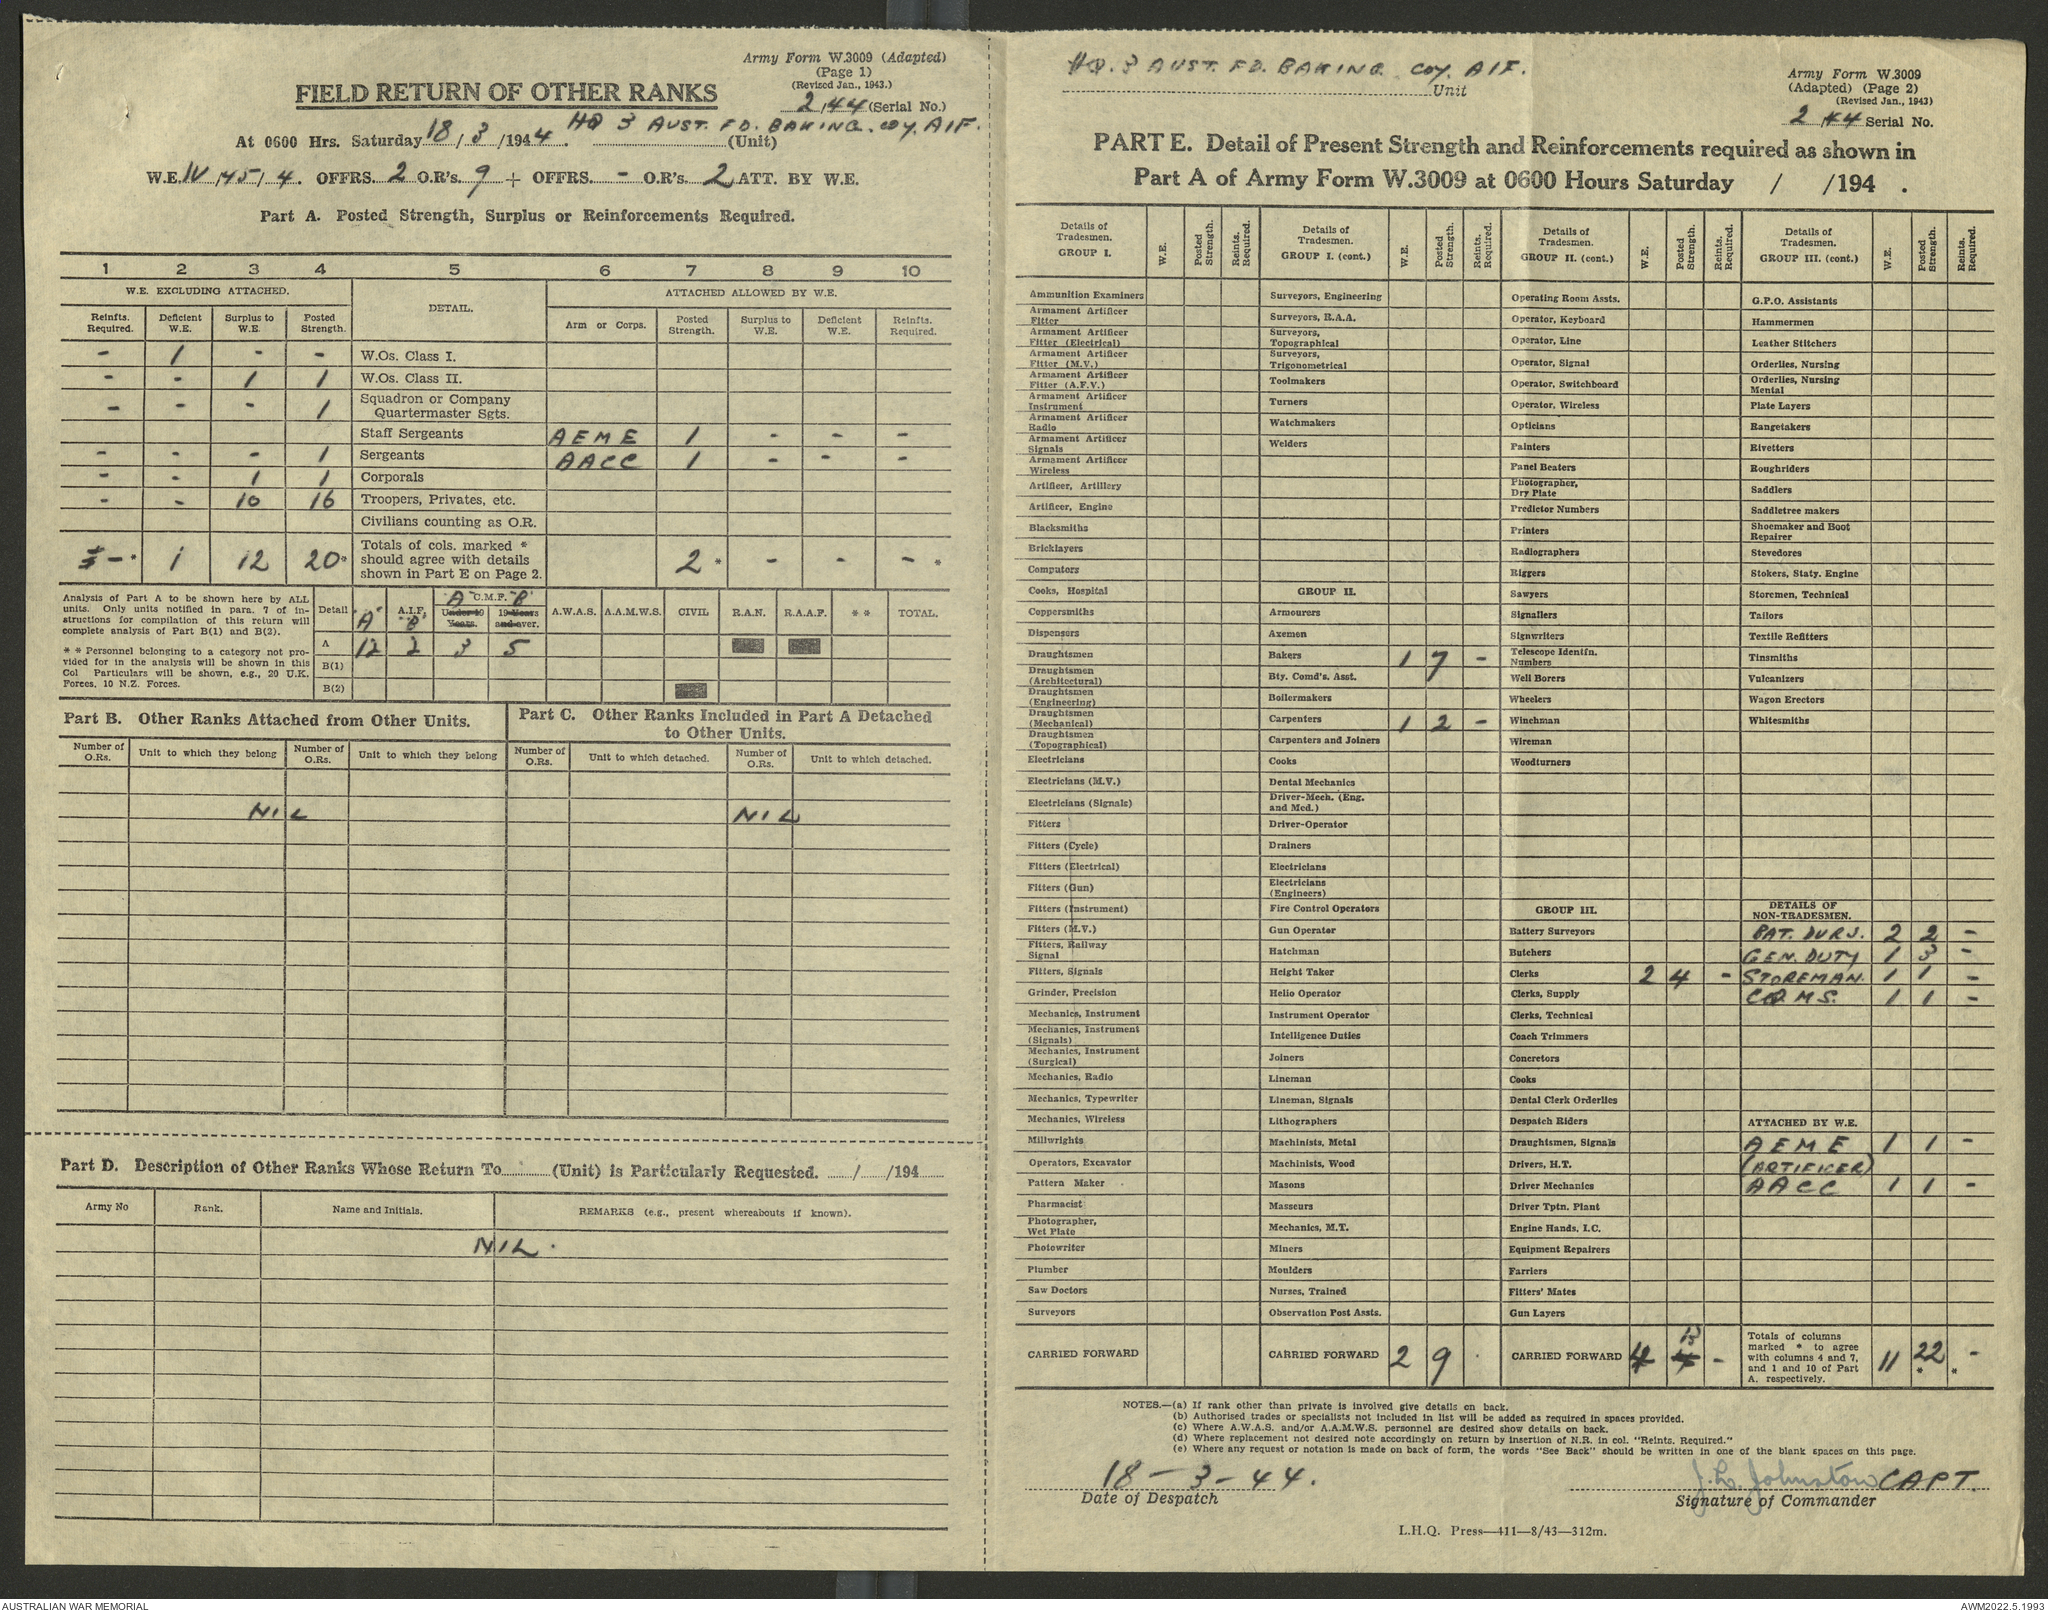 Army Form W.3009 (Adapted)
(Page 1)
(Revised Jan., 1943.)
FIELD RETURN OF OTHER RANKS
2/44 (Serial No.)
At 0600 Hrs. Saturday 18/3/1944. HQ 3 AUST. FD. BAKING. COY. AIF. (Unit)
W.E. IV/45/4. OFFRS. 2 O.R's. 9 + OFFRS. - O.R's. 2 ATT. BY W.E.
Part A. Posted Strength, Surplus or Reinforcements Required.
1 2 3 4 5 6 7 8 9 10
W.E. EXCLUDING ATTACHED. DETAIL. ATTACHED ALLOWED BY W.E.
Reinfts. Required. Deficient W.E. Surplus to W.E. Posted Strength. Arm or Corps. Posted Strength. Surplus to W.E. Deficient W.E. Reinfts. Required.
- 1 - - W.Os. Class I.
- - 1 1 W.Os. Class II.
- - - 1 Squadron or Company Quartermaster Sgts.
Staff Sergeants AEME 1 - - -
- - - 1 Sergeants AACC 1 - - -
- - 1 1 Corporals
- - 10 16 Troopers, Privates, etc.
Civilians counting as O.R.
- * 1 12 20* Totals of cols. marked * should agree with details shown in Part E on Page 2. 2 * - - - *
Analysis of Part A to be shown here by ALL units. Only units notified in para. 7 of instructions for compilation of this return will complete analysis of Part B(1) and B(2).
* * Personnel belonging to a category not provided for in the analysis will be shown in this Col Particulars will be shown, e.g., 20 U.K. Forces, 10 N.Z. Forces.
Detail "A" A.I.F. "B" "A" C.M.F. "B" Under 19 Years. 19 Years and over. A.W.A.S. A.A.M.W.S. CIVIL R.A.N. R.A.A.F. * * TOTAL.
A 12 2 3 5
B(1)
B(2)
Part B. Other Ranks Attached from Other Units.
Part C. Other Ranks Included in Part A Detached to Other Units.
Number of O.Rs. Unit to which they belong Number of O.Rs. Unit to which they belong Number of O.Rs. Unit to which detached. Number of O.Rs. Unit to which detached.
NIL NIL
Part D. Description of Other Ranks Whose Return To (Unit) is Particularly Requested. / /194
Army No Rank. Name and Initials. REMARKS (e.g., present whereabouts if known).
NIL.
HQ. 3 AUST. FD. BAKING. COY. AIF.
Unit
Army Form W.3009
(Adapted) (Page 2)
(Revised Jan., 1943)
2/44 Serial No.
PART E. Detail of Present Strength and Reinforcements required as shown in
Part A of Army Form W.3009 at 0600 Hours Saturday / /194 .
Details of Tradesmen. GROUP I. W.E. Posted Strength. Reints. Required.
Ammunition Examiners
Armament Artificer Fitter
Armament Artificer Fitter (Electrical)
Armament Artificer Fitter (M.V.)
Armament Artificer Fitter (A.F.V.)
Armament Artificer Instrument
Armament Artificer Radio
Armament Artificer Signals
Armament Artificer Wireless
Artificer, Artillery
Artificer, Engine
Blacksmiths
Bricklayers
Computors
Cooks, Hospital
Coppersmiths
Dispensers
Draughtsmen
Draughtsmen (Architectural)
Draughtsmen (Engineering)
Draughtsmen (Mechanical)
Draughtsmen (Topographical)
Electricians
Electricians (M.V.)
Electricians (Signals)
Fitters
Fitters (Cycle)
Fitters (Electrical)
Fitters (Gun)
Fitters (Instrument)
Fitters (M.V.)
Fitters, Railway Signal
Fitters, Signals
Grinder, Precision
Mechanics, Instrument
Mechanics, Instrument (Signals)
Mechanics, Instrument (Surgical)
Mechanics, Radio
Mechanics, Typewriter
Mechanics, Wireless
Millwrights
Operators, Excavator
Pattern Maker
Pharmacist
Photographer, Wet Plate
Photowriter
Plumber
Saw Doctors
Surveyors
CARRIED FORWARD
Details of Tradesmen. GROUP I. (cont.) W.E. Posted Strength. Reints. Required.
Surveyors, Engineering
Surveyors, R.A.A.
Surveyors, Topographical
Surveyors, Trigonometrical
Toolmakers
Turners
Watchmakers
Welders
GROUP II.
Armourers
Axemen
Bakers 1 7 -
Bty. Comd's. Asst.
Boilermakers
Carpenters 1 2 -
Carpenters and Joiners
Cooks
Dental Mechanics
Driver-Mech. (Eng. and Med.)
Driver-Operator
Drainers
Electricians
Electricians (Engineers)
Fire Control Operators
Gun Operator
Hatchman
Height Taker
Helio Operator
Instrument Operator
Intelligence Duties
Joiners
Lineman
Lineman, Signals
Lithographers
Machinists, Metal
Machinists, Wood
Masons
Masseurs
Mechanics, M.T.
Miners
Moulders
Nurses, Trained
Observation Post Assts.
CARRIED FORWARD 2 9
Details of Tradesmen. GROUP II. (cont.) W.E. Posted Strength. Reints. Required.
Operating Room Assts.
Operator, Keyboard
Operator, Line
Operator, Signal
Operator, Switchboard
Operator, Wireless
Opticians
Painters
Panel Beaters
Photographer, Dry Plate
Predictor Numbers
Printers
Radiographers
Riggers
Sawyers
Signallers
Signwriters
Telescope Identfn. Numbers
Well Borers
Wheelers
Winchman
Wireman
Woodturners
GROUP III.
Battery Surveyors
Butchers
Clerks 2 4 -
Clerks, Supply
Clerks, Technical
Coach Trimmers
Concretors
Cooks
Dental Clerk Orderlies
Despatch Riders
Draughtsmen, Signals
Drivers, H.T.
Driver Mechanics
Driver Tptn. Plant
Engine Hands, I.C.
Equipment Repairers
Farriers
Fitters' Mates
Gun Layers
CARRIED FORWARD 4 13 -
Details of Tradesmen. GROUP III. (cont.) W.E. Posted Strength. Reints. Required.
G.P.O. Assistants
Hammermen
Leather Stitchers
Orderlies, Nursing
Orderlies, Nursing Mental
Plate Layers
Rangetakers
Rivetters
Roughriders
Saddlers
Saddletree makers
Shoemaker and Boot Repairer
Stevedores
Stokers, Staty. Engine
Storemen, Technical
Tailors
Textile Refitters
Tinsmiths
Vulcanizers
Wagon Erectors
Whitesmiths
DETAILS OF NON-TRADESMEN.
BAT. DURS. 2 2 -
GEN. DUTY 1 3 -
STOREMAN. 1 1 -
CQMS. 1 1 -
ATTACHED BY W.E.
AEME 1 1 -
(ARTIFICER)
AACC 1 1 -
Totals of columns marked * to agree with columns 4 and 7, and 1 and 10 of Part A. respectively. 11 22 * - *
NOTES.—(a) If rank other than private is involved give details on back.
(b) Authorised trades or specialists not included in list will be added as required in spaces provided.
(c) Where A.W.A.S. and/or A.A.M.W.S. personnel are desired show details on back.
(d) Where replacement not desired note accordingly on return by insertion of N.R. in col. "Reints. Required."
(e) Where any request or notation is made on back of form, the words "See Back" should be written in one of the blank spaces on this page.
18-3-44.
Date of Despatch
J. L. Johnston CAPT.
Signature of Commander
L.H.Q. Press—411—8/43—312m.
AUSTRALIAN WAR MEMORIAL
AWM2022.5.1993